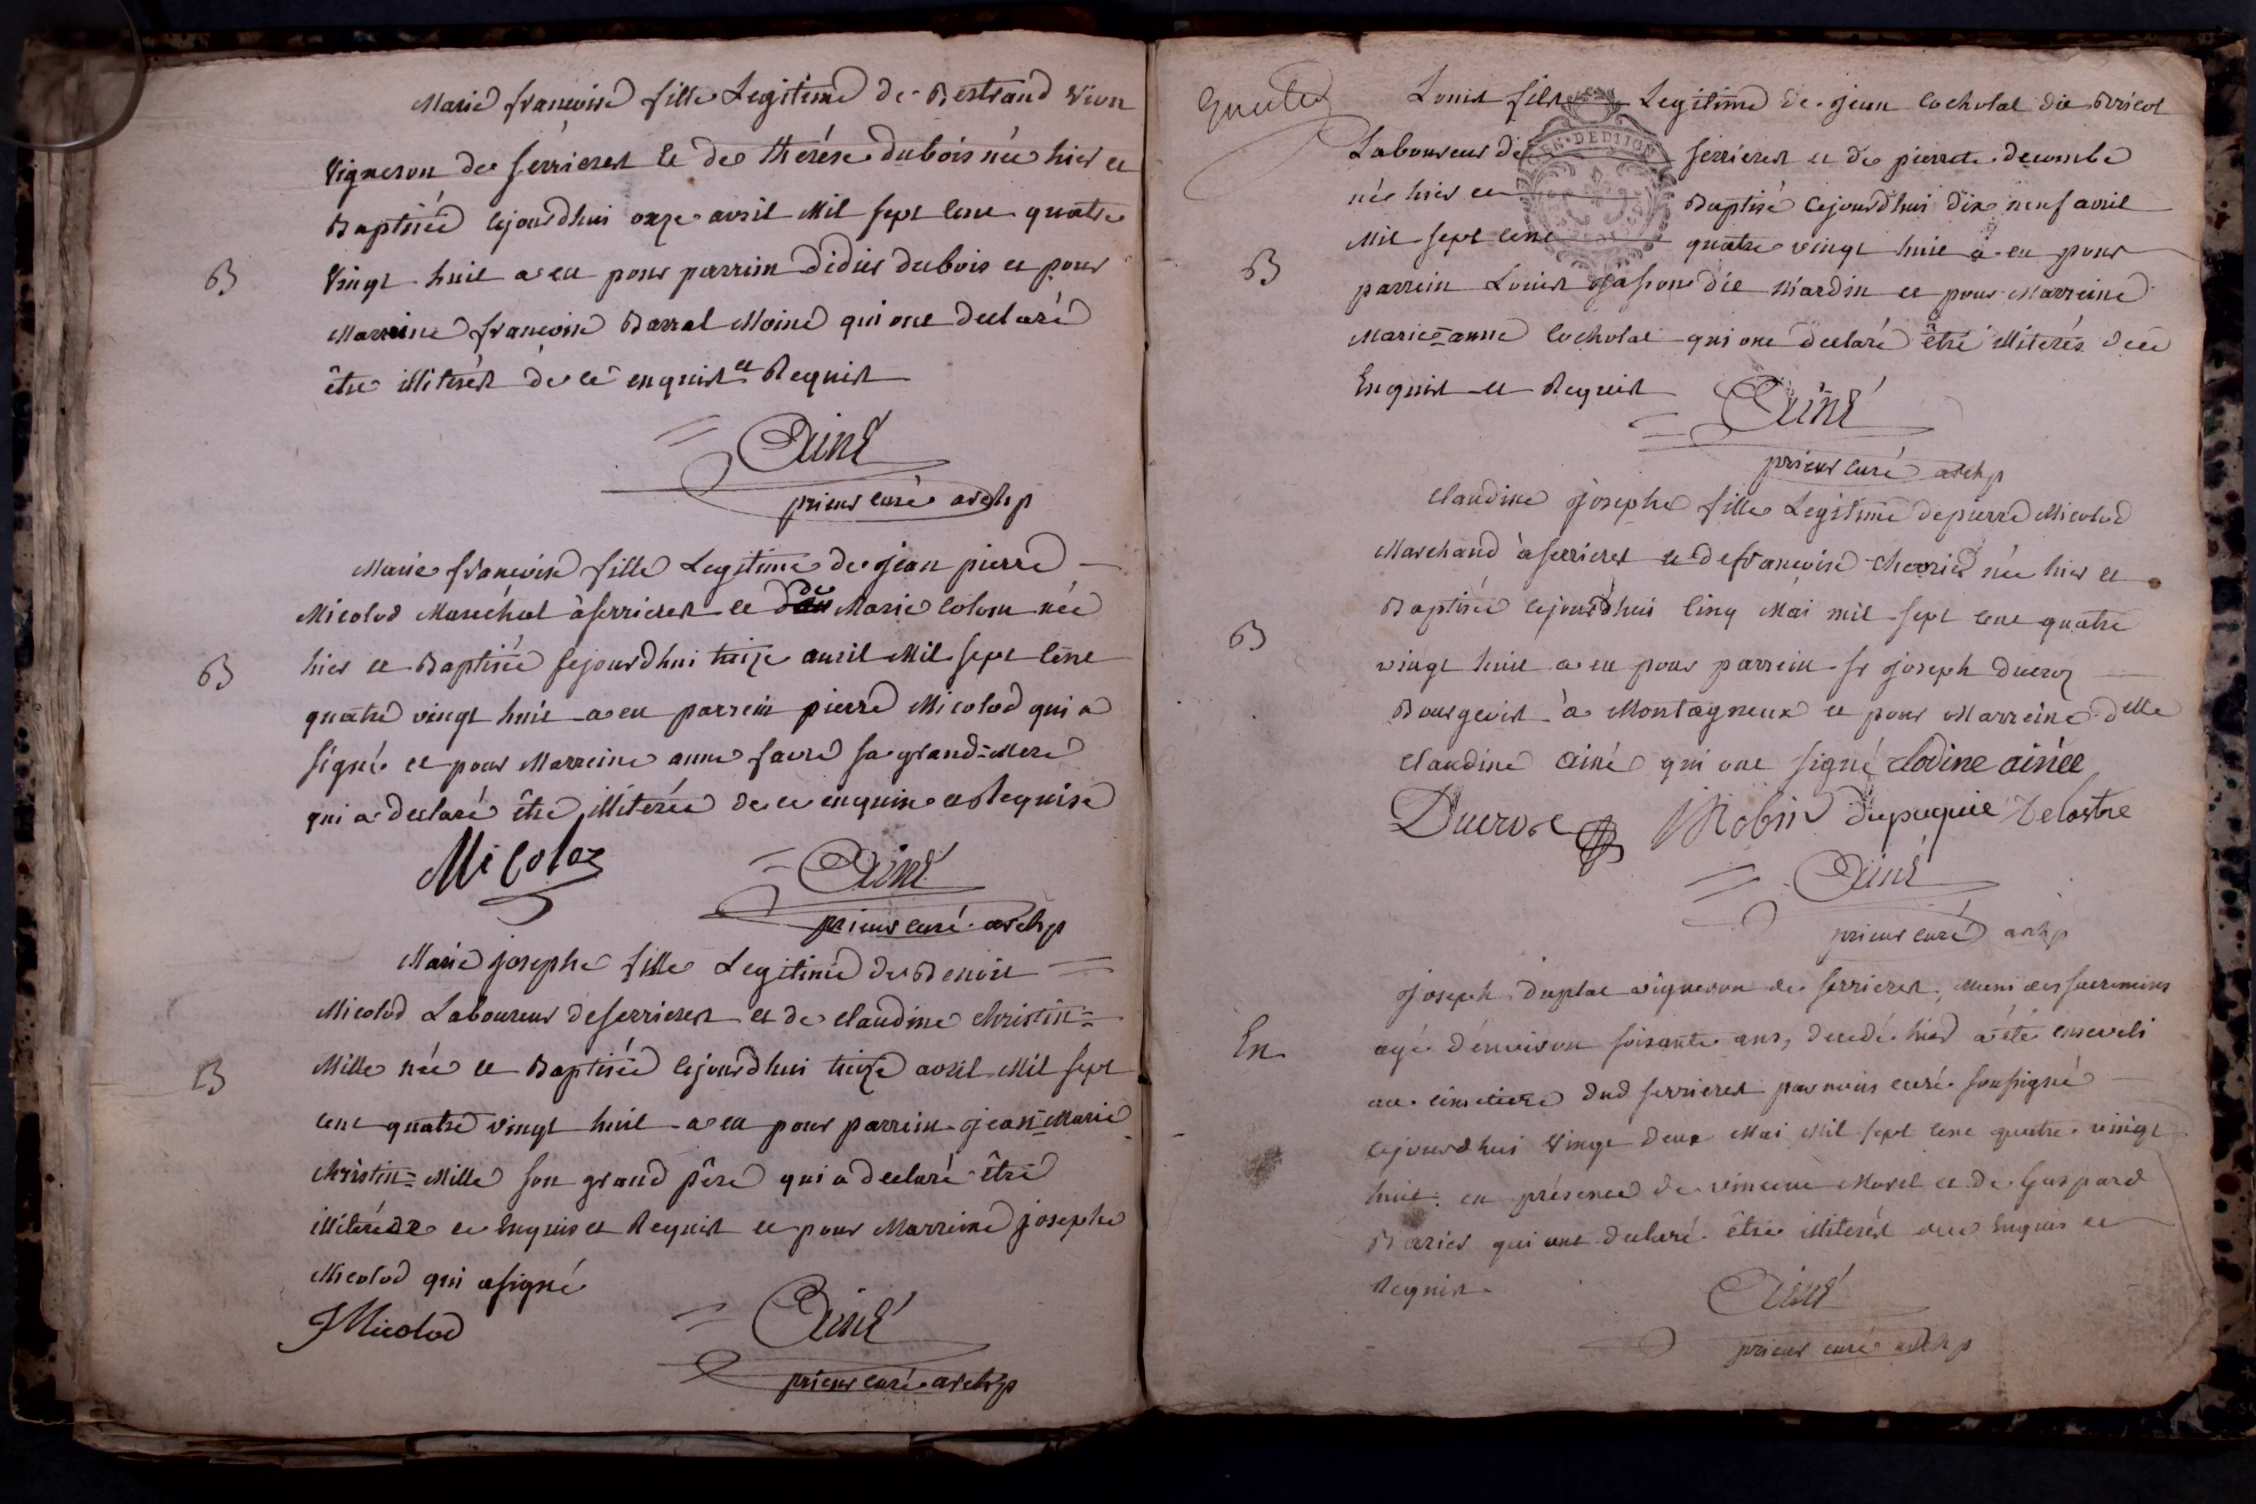 Marie françoise fille Legitime de Bertrand Vion
Vigneron de serrieres et de thérése dubois née hier et
Baptisée cejourdhui onze avril Mil sept cent quatre
B
Vingt huit a eu pour parrain didier dubois et pour
Marreine françoise Barral Moine qui ont declaré
être illiterés de ce enquis et Requis
Ainé
prieur curé archp
Marie françoise fille Legitime de jean pierre
Micolod Maréchal à serrieres et de Marie colom née
B
hier et Baptisée sejourdhui treize avril Mil sept cent
quatre vingt huit a eu parrein pierre Micolod qui a
signé et pour Marreine anne favre sa grand=Mere
qui a declaré être illiterée de ce enquise et Requise
Micoloz
Ainé
prieur curé archp
Marie josephe fille Legitime de Benoit
Micolod Laboureur de serrieres et de claudine christin=
B
Mille née et Baptisée cejourdhui treize avril Mil sept
cent quatre vingt huit a eu pour parrein jean=Marie
christin=Mille son grand pêre qui a declaré être
illiteré de ce Enquis et Requis et pour Marreine josephe
Micolod qui a signé
JMicolod
Ainé
prieur curé archp
Louis fils Legitime de jean cocholat dit Bricot
Laboureur de serrieres et de pierrette decombe
GEN. DEDITION
né hier et Baptisé cejourdhui dix neuf avril
Mil sept cent quatre vingt huit a eu pour
B
parrein Louis jason dit Nardin et pour Marreine
Marie=anne cocholat qui ont declaré être illiterés de ce
Enquis et Requis
Ainé
prieur curé archp
claudine josephe fille Legitime de pierre Micolod
Marchand à serrieres et de françoise chevrier née hier et
Baptisée cejourdhui cinq Mai mil sept cent quatre
B
vingt huit a eu pour parrein sr joseph ducroz
Bourgeois à Montagneux et pour Marreine delle
claudine ainé qui ont signé clodine ainée
Ducrose Robin dupuquie Delastre
Ainé
prieur curé archp
joseph duplat vigneron de serrieres, Muni des sacremens
En
agé d'environ soixante ans, decedé hier a été enseveli
au cimetiere dud serrieres par nous curé soussigné
cejourdhui Vingt deux Mai Mil sept cent quatre vingt
huit en présence de vincent Morel et de Gaspard
Barier qui ont declaré être illiterés de ce Enquis et
Requis.
Ainé
prieur curé archp